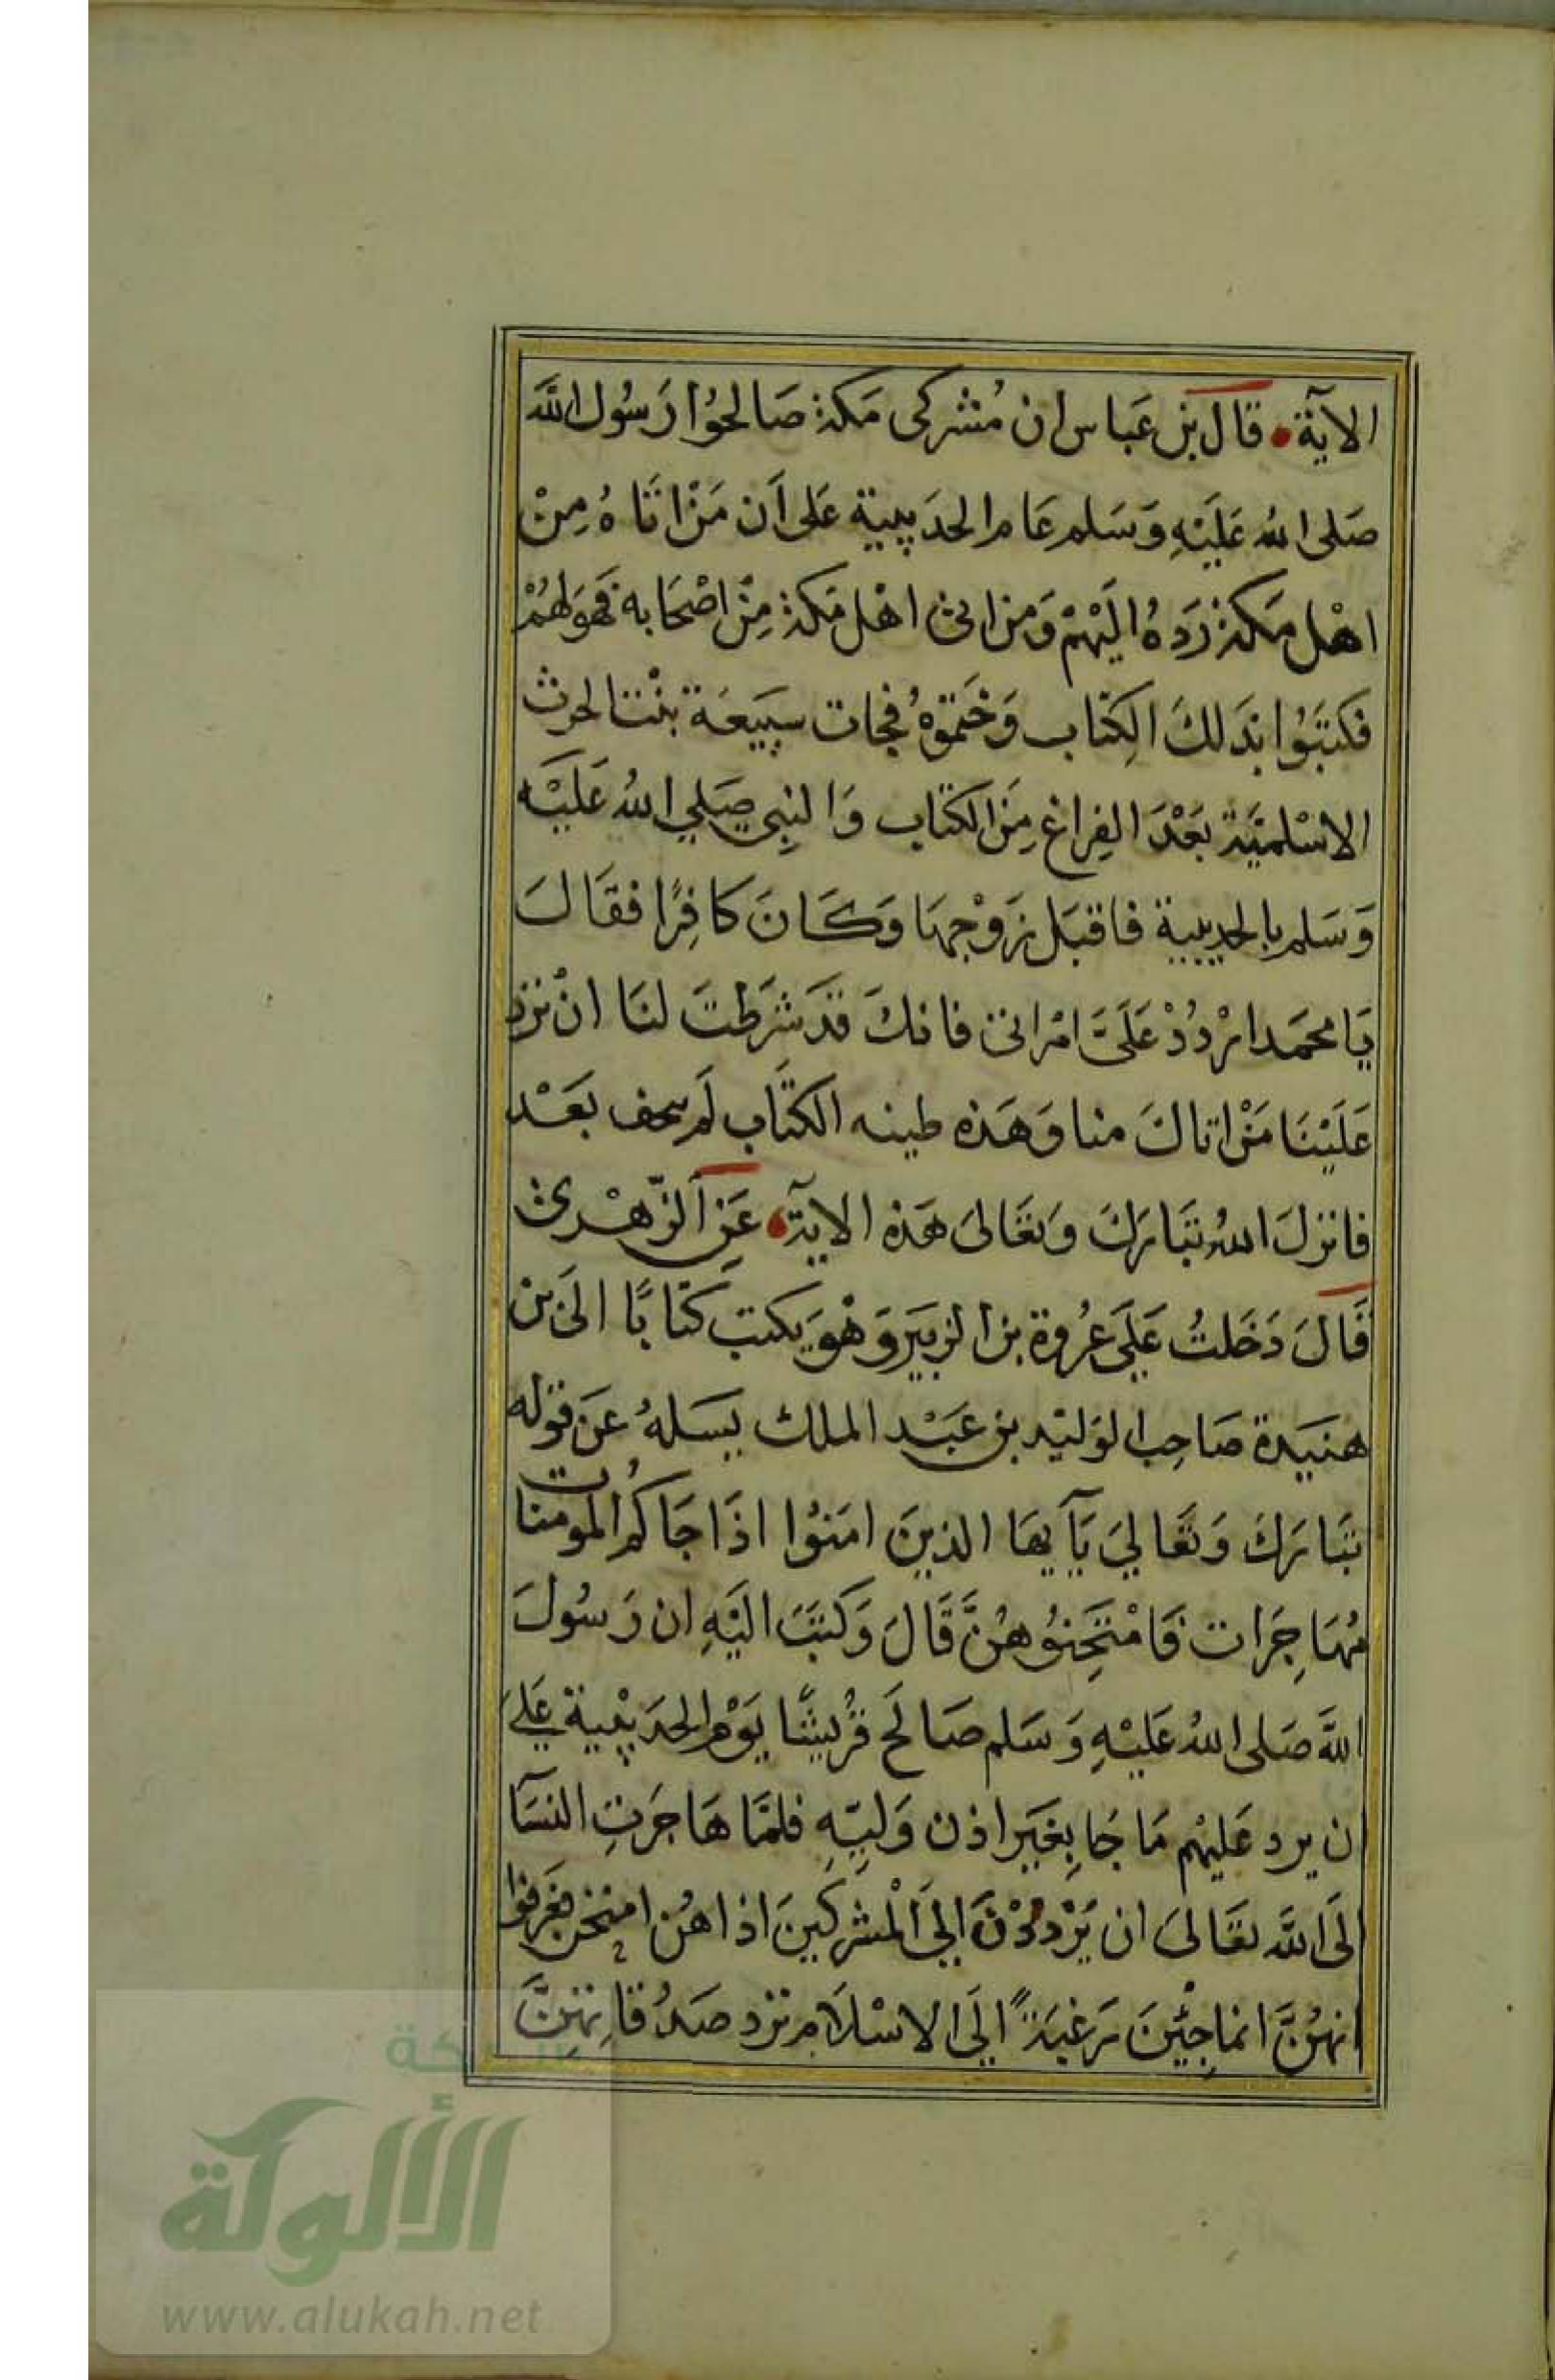 الآية قال بن عَباس ان مُشركى مَكة صَالحوُا رَسُول الله
صَلى الله عَليْهِ وَسَلم عَام الحدَيبية عَلى اَن مَنْ اتَاهُ مِنْ
اهْل مَكة رَدهُ اليَهْم وَمن اتى اهْل مَكة مِنْ اصْحَابه فهَو لهُمْ
فكتَبُوا بذَلكَ الكِتاب وَختموهُ فجات سبيَعَة بنْت الحرث
الاسْلميَّة بَعْدَ الفِراغ مِنَ الكتاب وَالنِبى صَلي اللهُ عَليْه
وَسَلم بالحديبية فاقبَل زَوْجهَا وَكَانَ كافِرًا فقالَ
يَا محمَد ارْدُدْ عَلَىَّ امْراتى فانكَ قدَ شرَطتَ لنَا انْ ترد
عَلَيْنَا مَنْ اتاكَ منا وَهَذه طينه الكتَاب لَم تجف بَعَدْ
فانزلَ اللهُ تبَارَكَ وَتعَالىَ هَذه الاية عَنِ الزّهْرى
قَالَ دَخَلتُ عَلَي عُروة بن الزبيَر وَهْوَ يكتب كتابًا الَى بن
هنيَدة صَاحِب الوَليْد بن عَبْد الملك يسَلهُ عَن قوله
تبَارَكَ وَتعَاليَ يَآيهَا الذينَ امَنوُا اذَا جَاكُم المومنات
مُهَاجِرَات فَامْتَحِنوُهُنَّ قَالَ وَكتبَ اليْهِ ان رَسُولَ
اللهَ صَلى اللهُ عَليْهِ وَسَلم صَالحَ قرُيشًا يَوْم الحدَيْبية عَلي
ان يرد عَليْهم مَا جَا بِغيَر اذن وَليّهِ فلمَّا هَاجَرَتِ النسَآ
الَى اللهَ تعَالىَ ان يُرْددْنَ اليَ المْشركِينَ اذا هُن امتحن فعرفوا
انهُنَّ انما جِئْنَ رَغبَةً اليَ الاسْلَام ترد صَدُقاتهِنَّ
شبكة
الألوكة
www.alukah.net